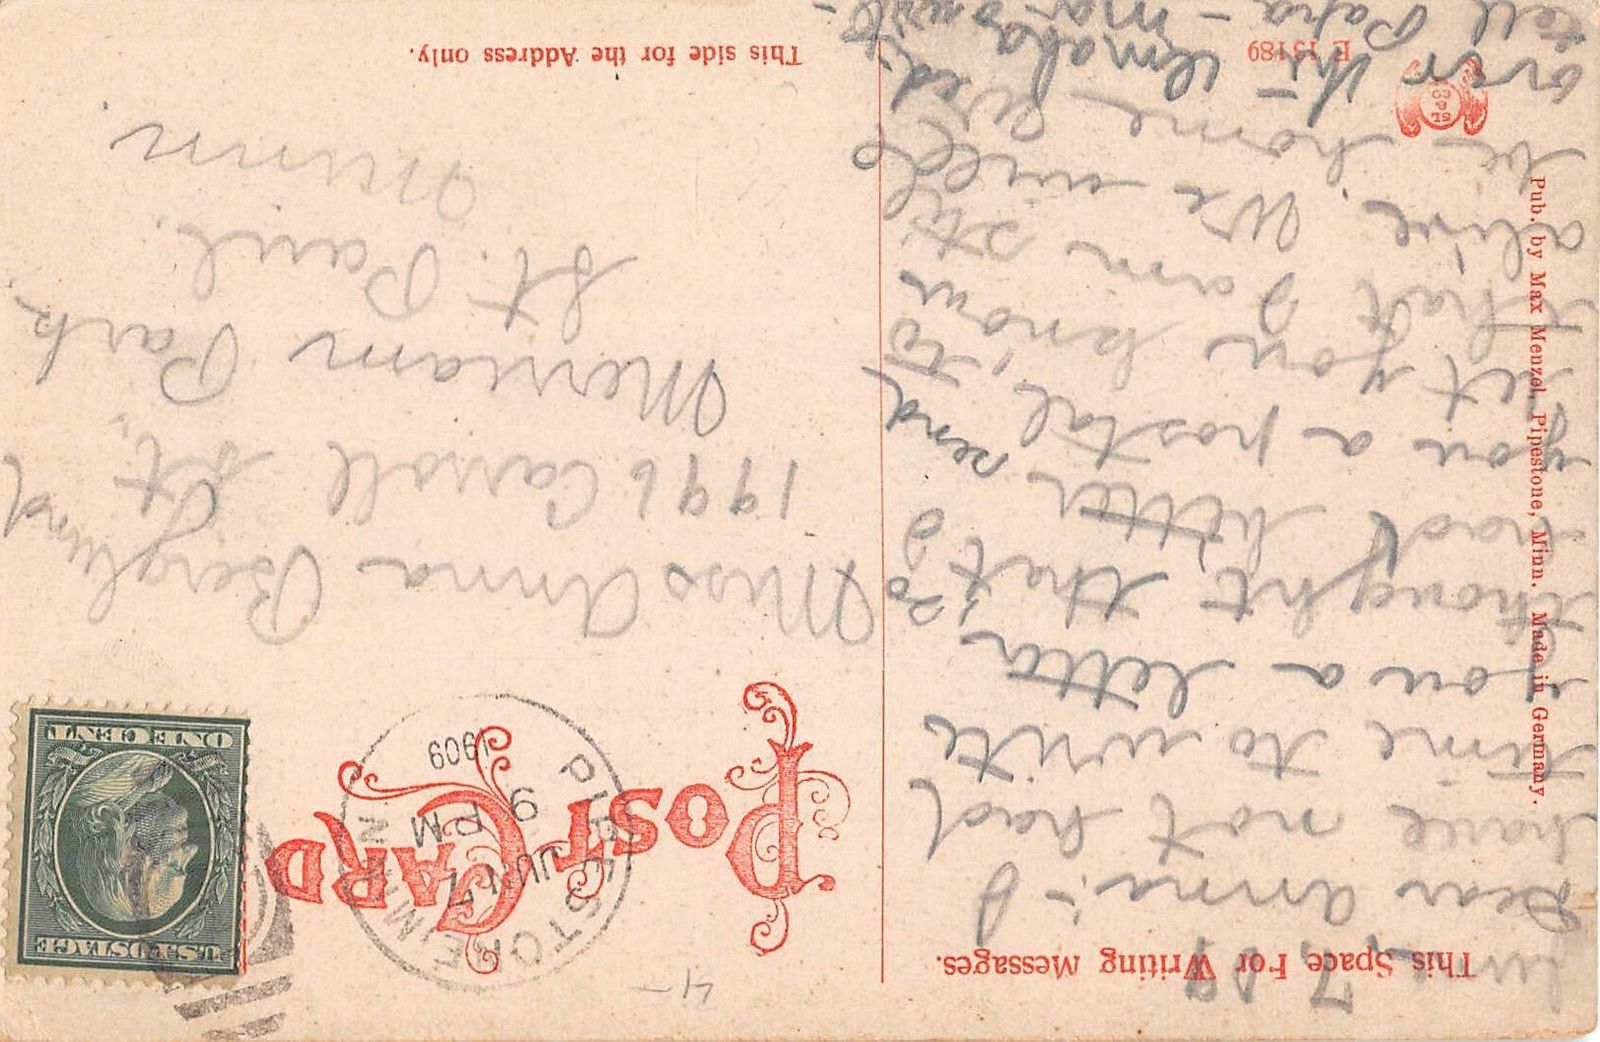 This Space For Writing Messages.
7, 09
Dear Anna:- I
have not had
time to write
you a letter so
thought that I
had better send
you a postal, to
let you know
that I am still
alive. We will
be home Wed.
over the
tell Papa - ma -
Pub. by Max Menzel, Pipestone, Minn. Made in Germany.
SL & CO
E 15189
POST CARD
PIPESTONE MINN
JUN 7
9 PM
1909
U.S. POSTAGE
ONE CENT
4-
Miss Anna Berglund
1996 Carroll St.,
Merriam Park,
St. Paul.
Minn.
This side for the Address only.